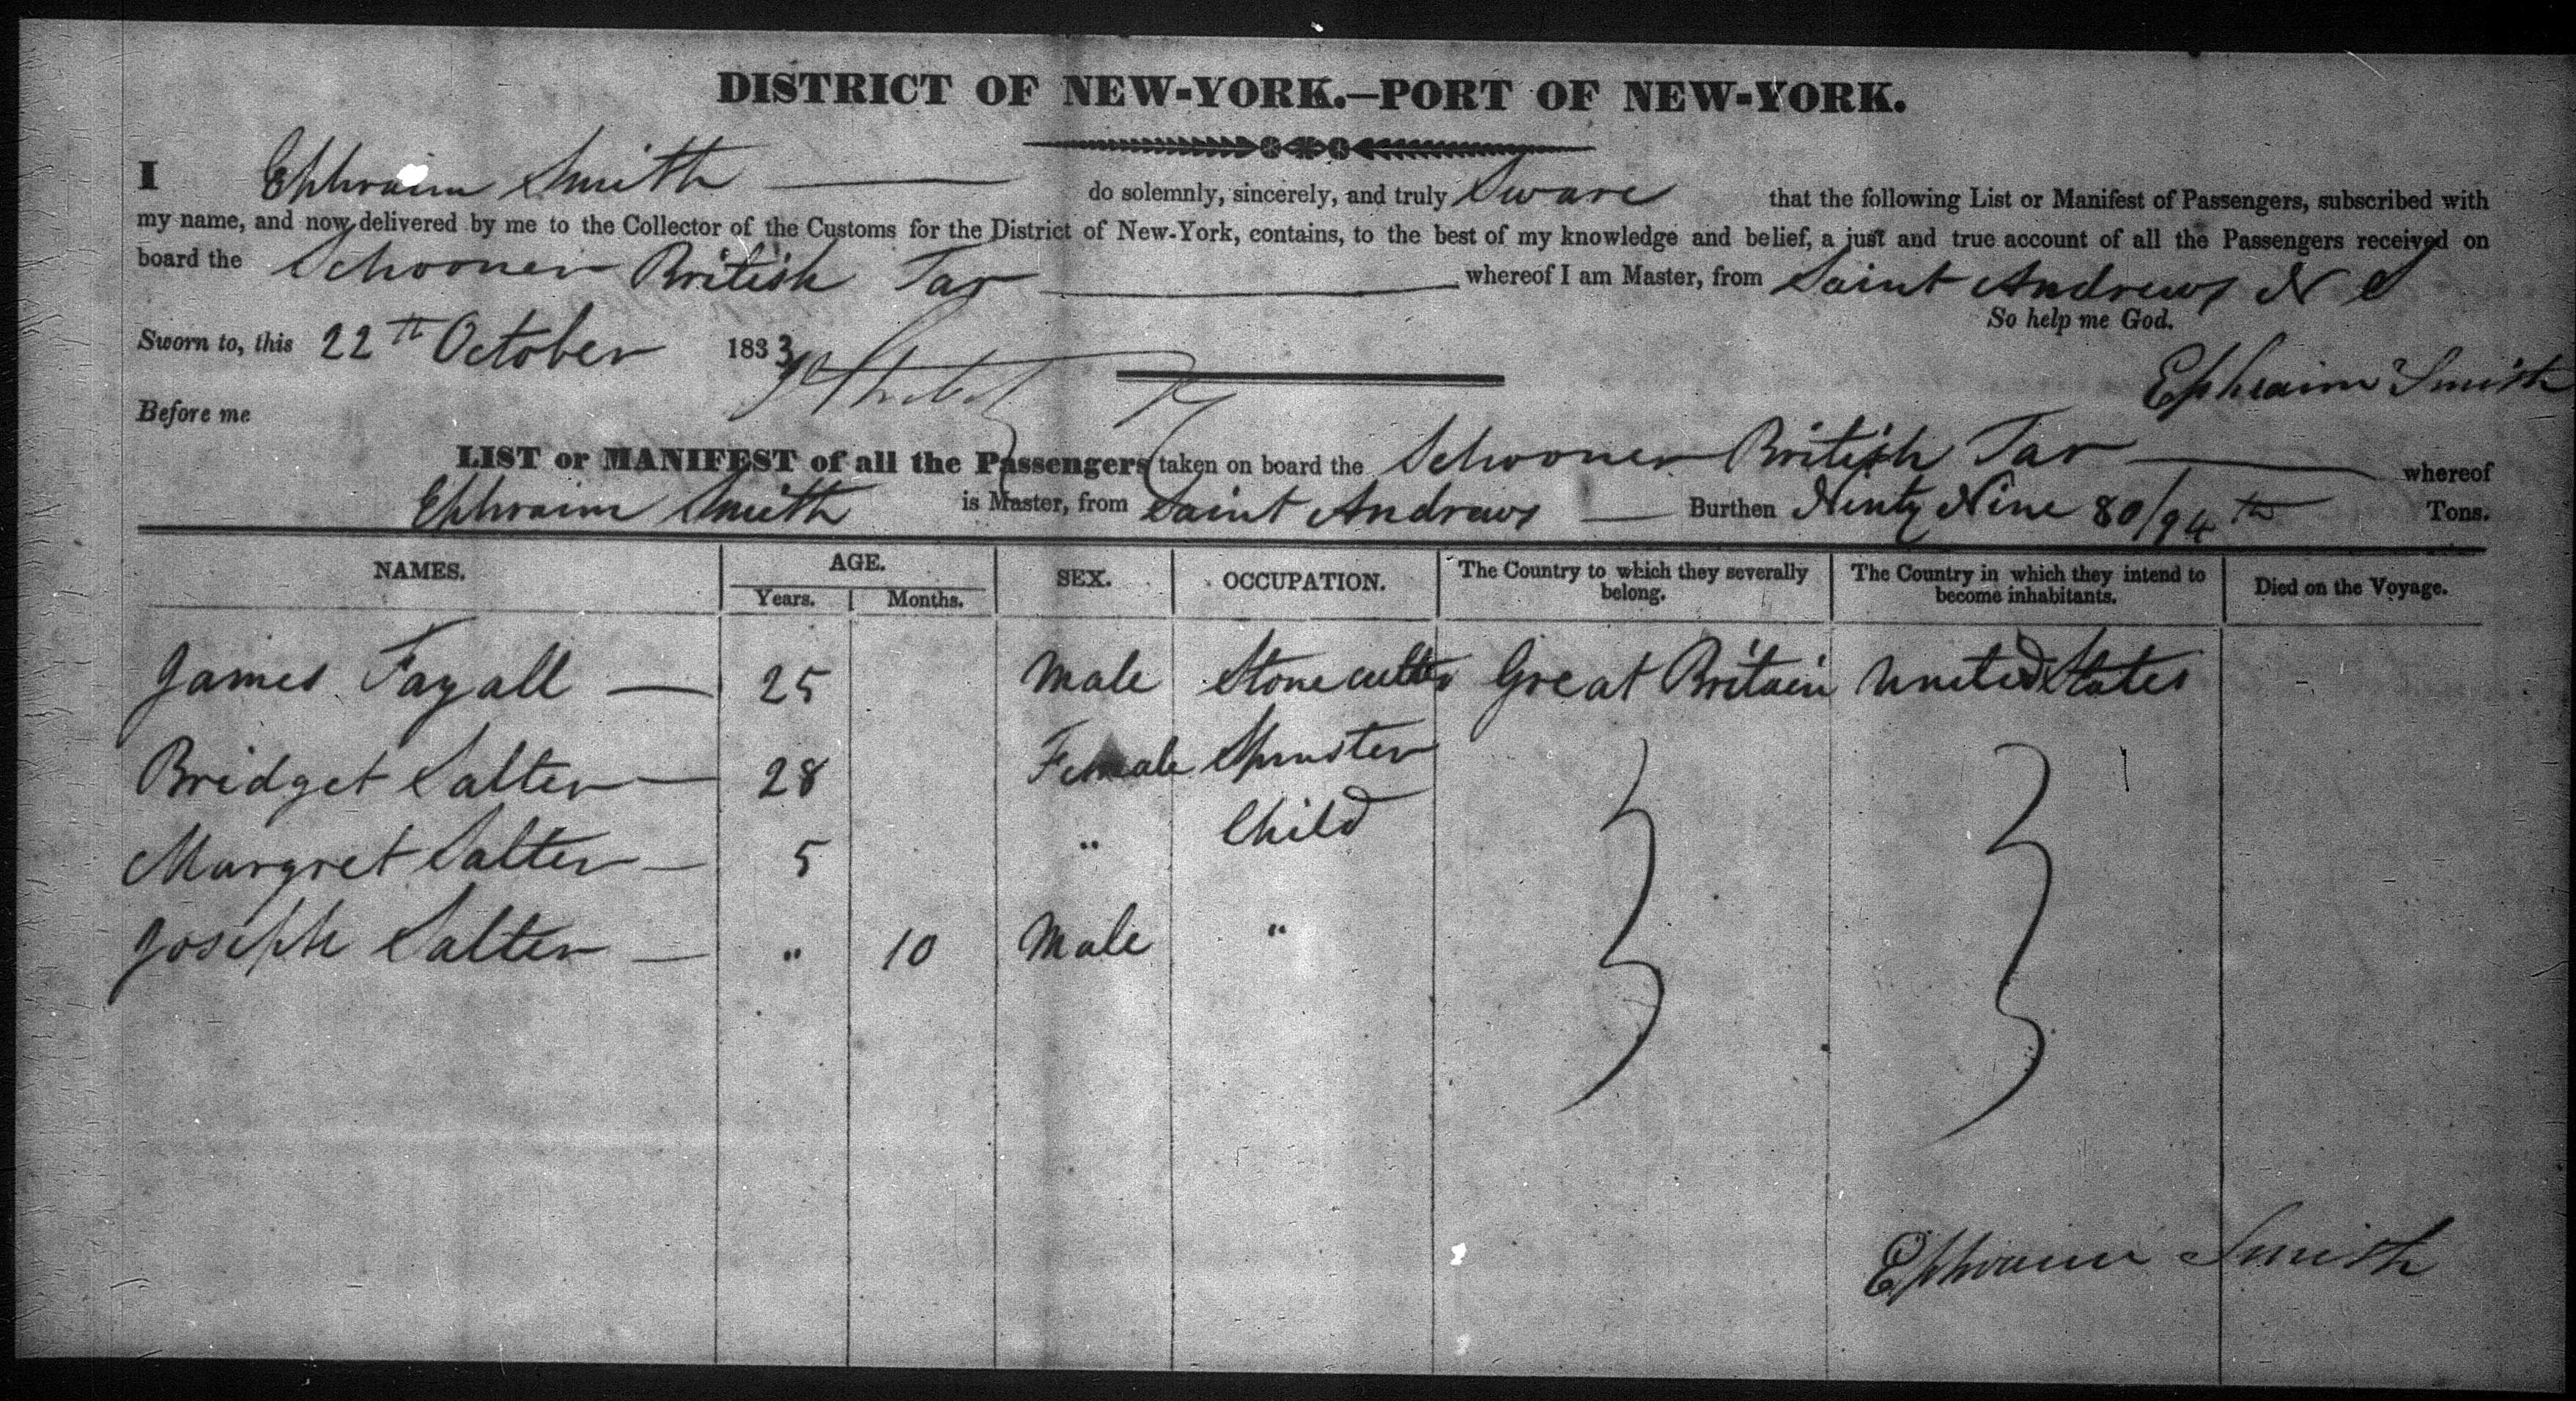 DISTRICT OF NEW-YORK.—PORT OF NEW-YORK.
I Ephraim Smith — do solemnly, sincerely, and truly Sware that the following List or Manifest of Passengers, subscribed with
my name, and now delivered by me to the Collector of the Customs for the District of New-York, contains, to the best of my knowledge and belief, a just and true account of all the Passengers received on
board the Schooner British Tar — whereof I am Master, from Saint Andrews N S
So help me God.
Sworn to, this 22th October 1833
Ephraim Smith
Before me
LIST or MANIFEST of all the Passengers taken on board the Schooner British Tar — whereof
Ephraim Smith is Master, from Saint Andrews — Burthen Ninty Nine 80/94th Tons.
NAMES. AGE. SEX. OCCUPATION. The Country to which they severally belong. The Country in which they intend to become inhabitants. Died on the Voyage.
Years. Months.
James Fayall — 25 Male Stone cutter Great Britain United States
Bridget Salter — 28 Female Spinster
Margret Salter — 5 " Child
Joseph Salter — " 10 Male "
Ephraim Smith